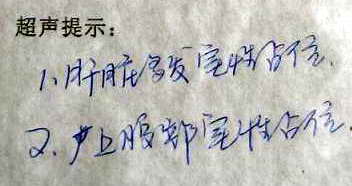 超声提示：
1、肝脏多发实性占位.
2. 上腹部实性占位.